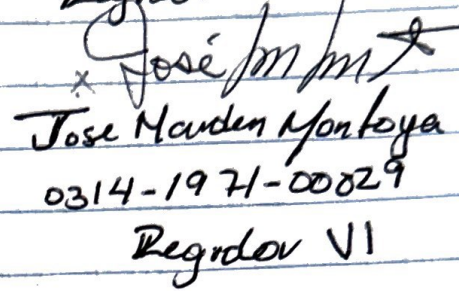 x José
Jose Mauden Montoya
0314-1971-00029
Regidor VI